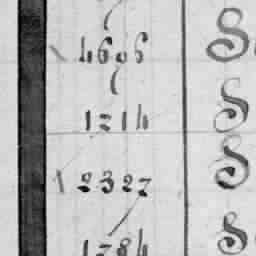 4606 S
1214 S
2327 S
1784 S